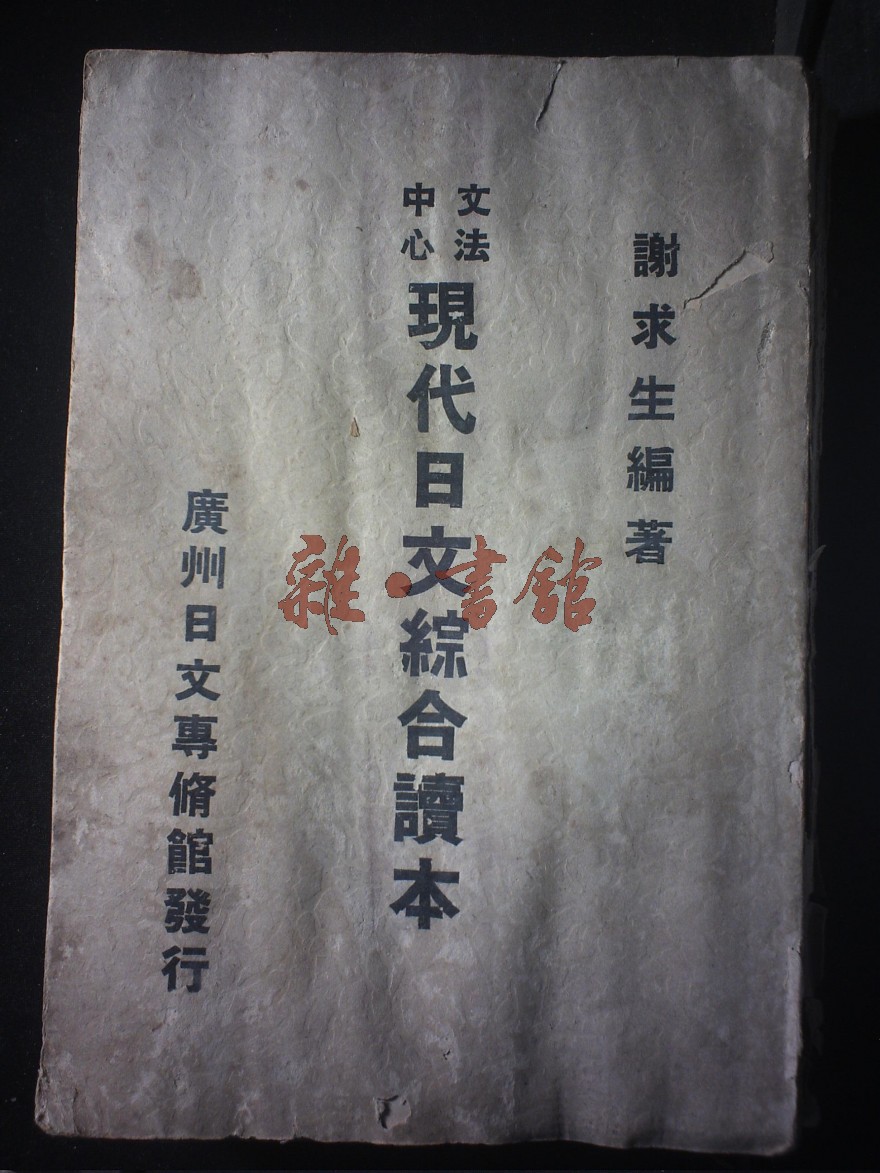 謝求生編著
文法
中心
現代日文綜合讀本
廣州日文專脩館發行
雜·書館